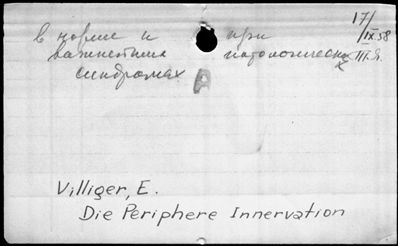 в норме и при 17/IX 58
важнейших патологических III.Я.
синдромах А
Villiger, E.
Die Periphere Innervation